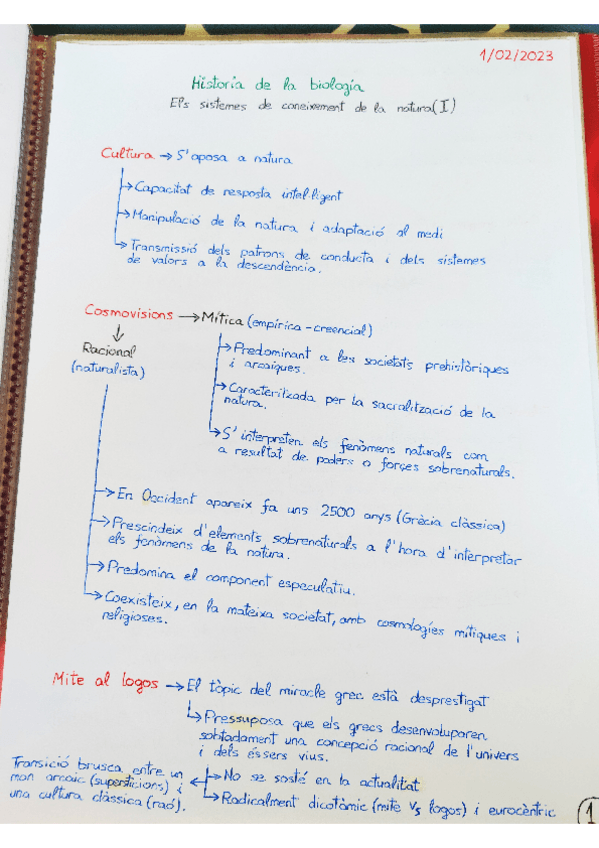 1/02/2023
Historia de la biología
Els sistemes de coneixement de la natura (I)
Cultura → S'aposa a natura
→ Capacitat de resposta intel·ligent
→ Manipulació de la natura i adaptació al medi
→ Transmissió dels patrons de conducta i dels sistemes
de valors a la descendència.
Cosmovisions → Mítica (empírica-creencial)
↓
Racional
(naturalista)
→ Predominant a les societats prehistòriques
i arcaiques.
→ Caracteritzada per la sacralització de la
natura.
→ S'interpreten els fenòmens naturals com
a resultat de poders o forçes sobrenaturals.
→ En Occident apareix fa uns 2500 anys (Gràcia clàssica)
→ Prescindeix d'elements sobrenaturals a l'hora d'interpretar
els fenòmens de la natura.
→ Predomina el component especulatiu.
→ Coexisteix, en la mateixa societat, amb cosmologíes mítiques i
religioses.
Mite al logos → El tòpic del miracle grec està desprestigat
→ Pressuposa que els grecs desenvoluparen
sobtadament una concepció racional de l'univers
i dels éssers vius.
Transició brusca entre un
mon arcaic (supersticions) i
una cultura clàssica (raó).
→ No se sosté en la actualitat
→ Radicalment dicotòmic (mite vs logos) i eurocèntric
1